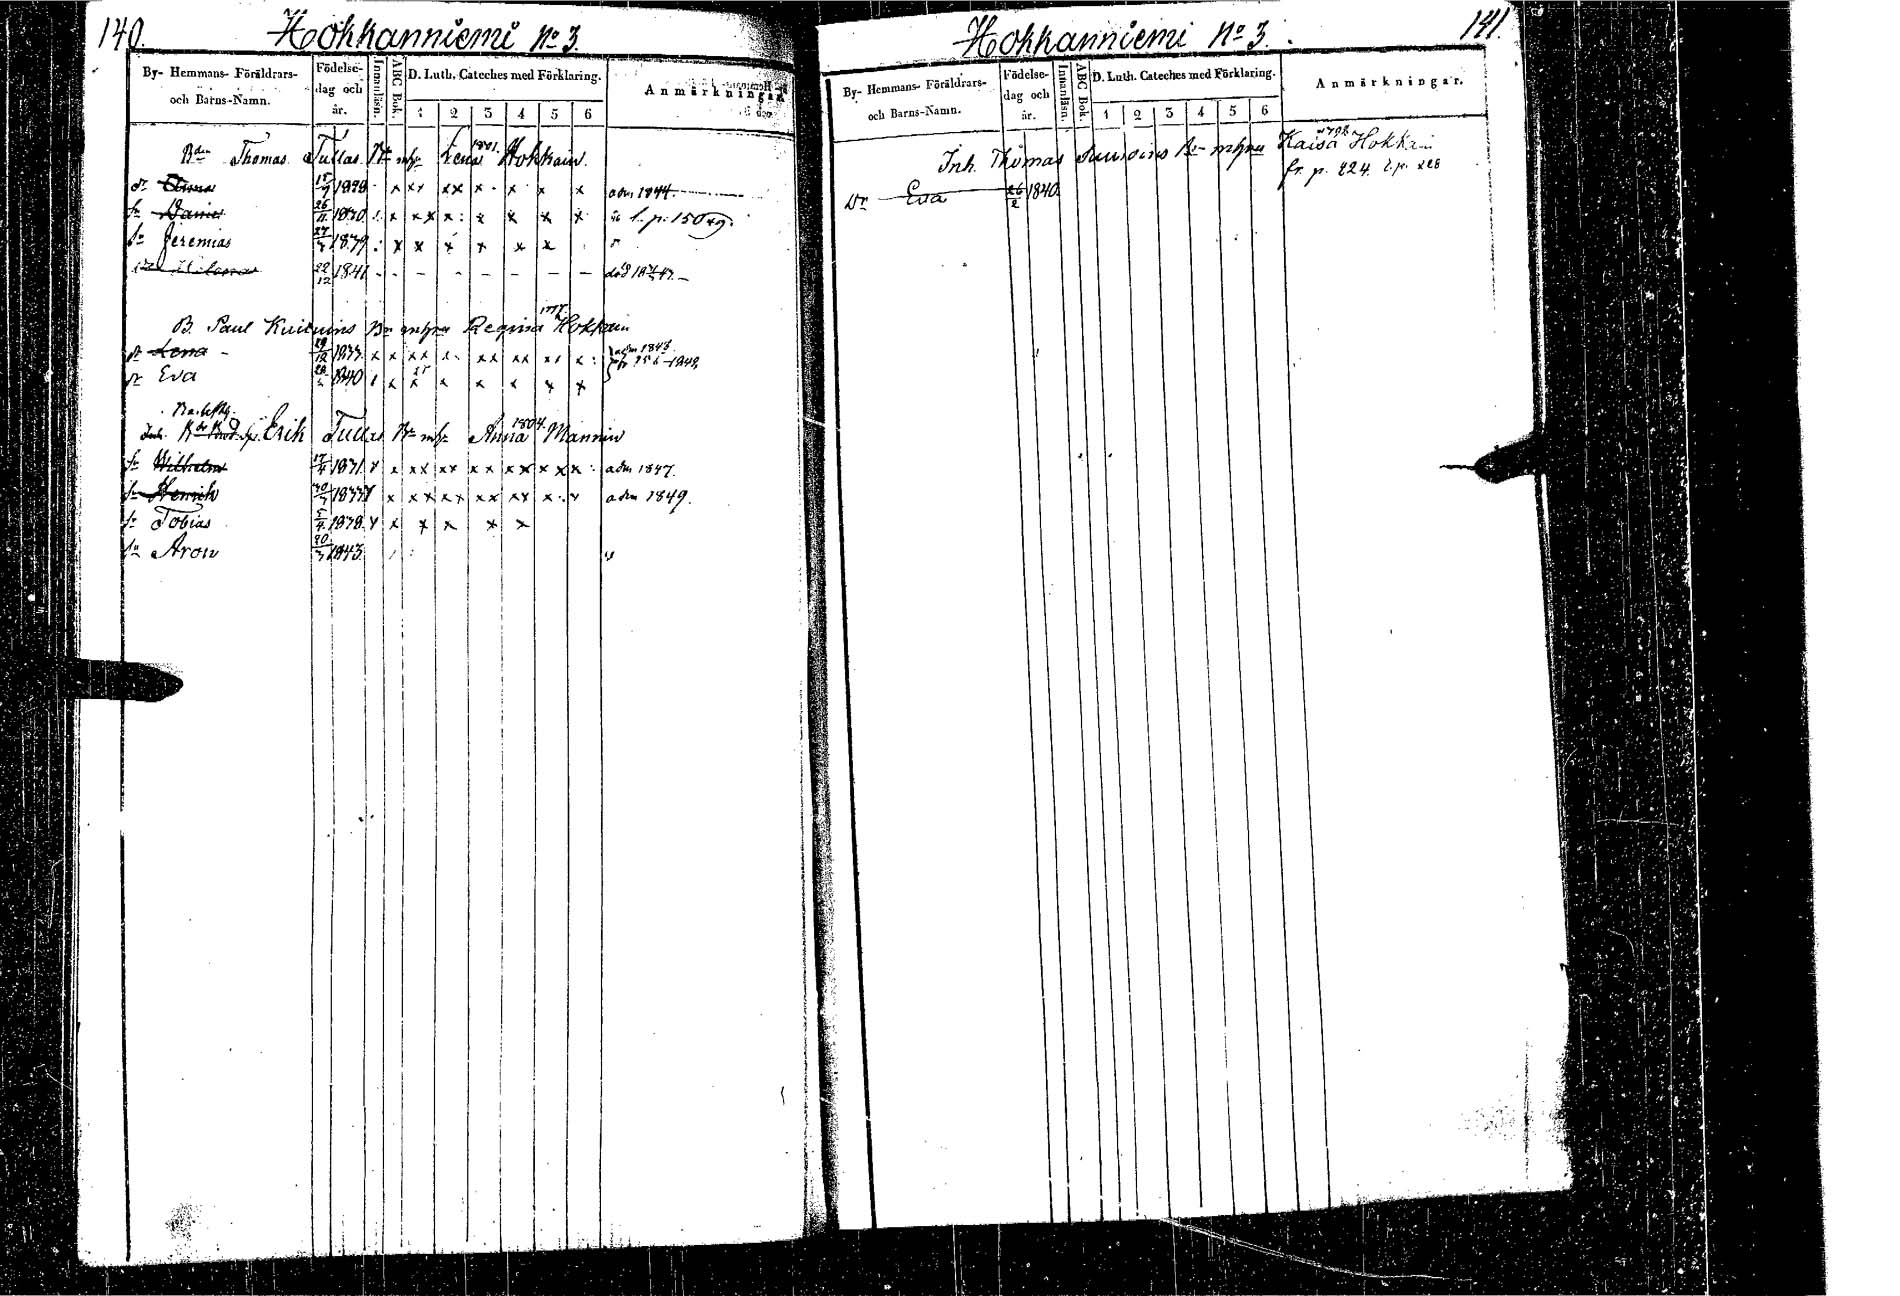 140.
Hokkanniemi No 3.
By- Hemmans- Föräldrars- och Barns-Namn.
Födelse-dag och år.
Innanläsn.
ABC Bok.
D. Luth. Cateches med Förklaring.
1 2 3 4 5 6
Anmärkningar
1801.
Bden Thomas Tullas Br mhr Lena Hokkain
dr Anna 1828 x xx xx x x x x adm 1844
sn Daniel 26/11 1830 x xx x x x x x l. p. 150
sn Jeremias 1839 x x x x x x
22/12 1841 - - - - - - död
B. Paul Br mhra Regina Hokkain
dr Lena x x xx xx xx x adm 1848
dr Eva 1840 x x x x x x x
Backstug.
1804.
Erik Tullas Br mhr Anna Mannin
sn Wilhelm 1831 x x xx xx xx xx x x x adm 1847.
sn Henrik 1833 x xx xx xx xx x adm 1849.
sn Tobias 5/4 1838 x x x x x
sn Aron 20/3 1843
141.
Hokkanniemi No 3.
By- Hemmans- Föräldrars- och Barns-Namn.
Födelse-dag och år.
Innanläsn.
ABC Bok.
D. Luth. Cateches med Förklaring.
1 2 3 4 5 6
Anmärkningar.
Inh. Thomas mhra Kaisa Hokkain
fr. p. 224. l. p. 228
Dr Eva 26/2 1840